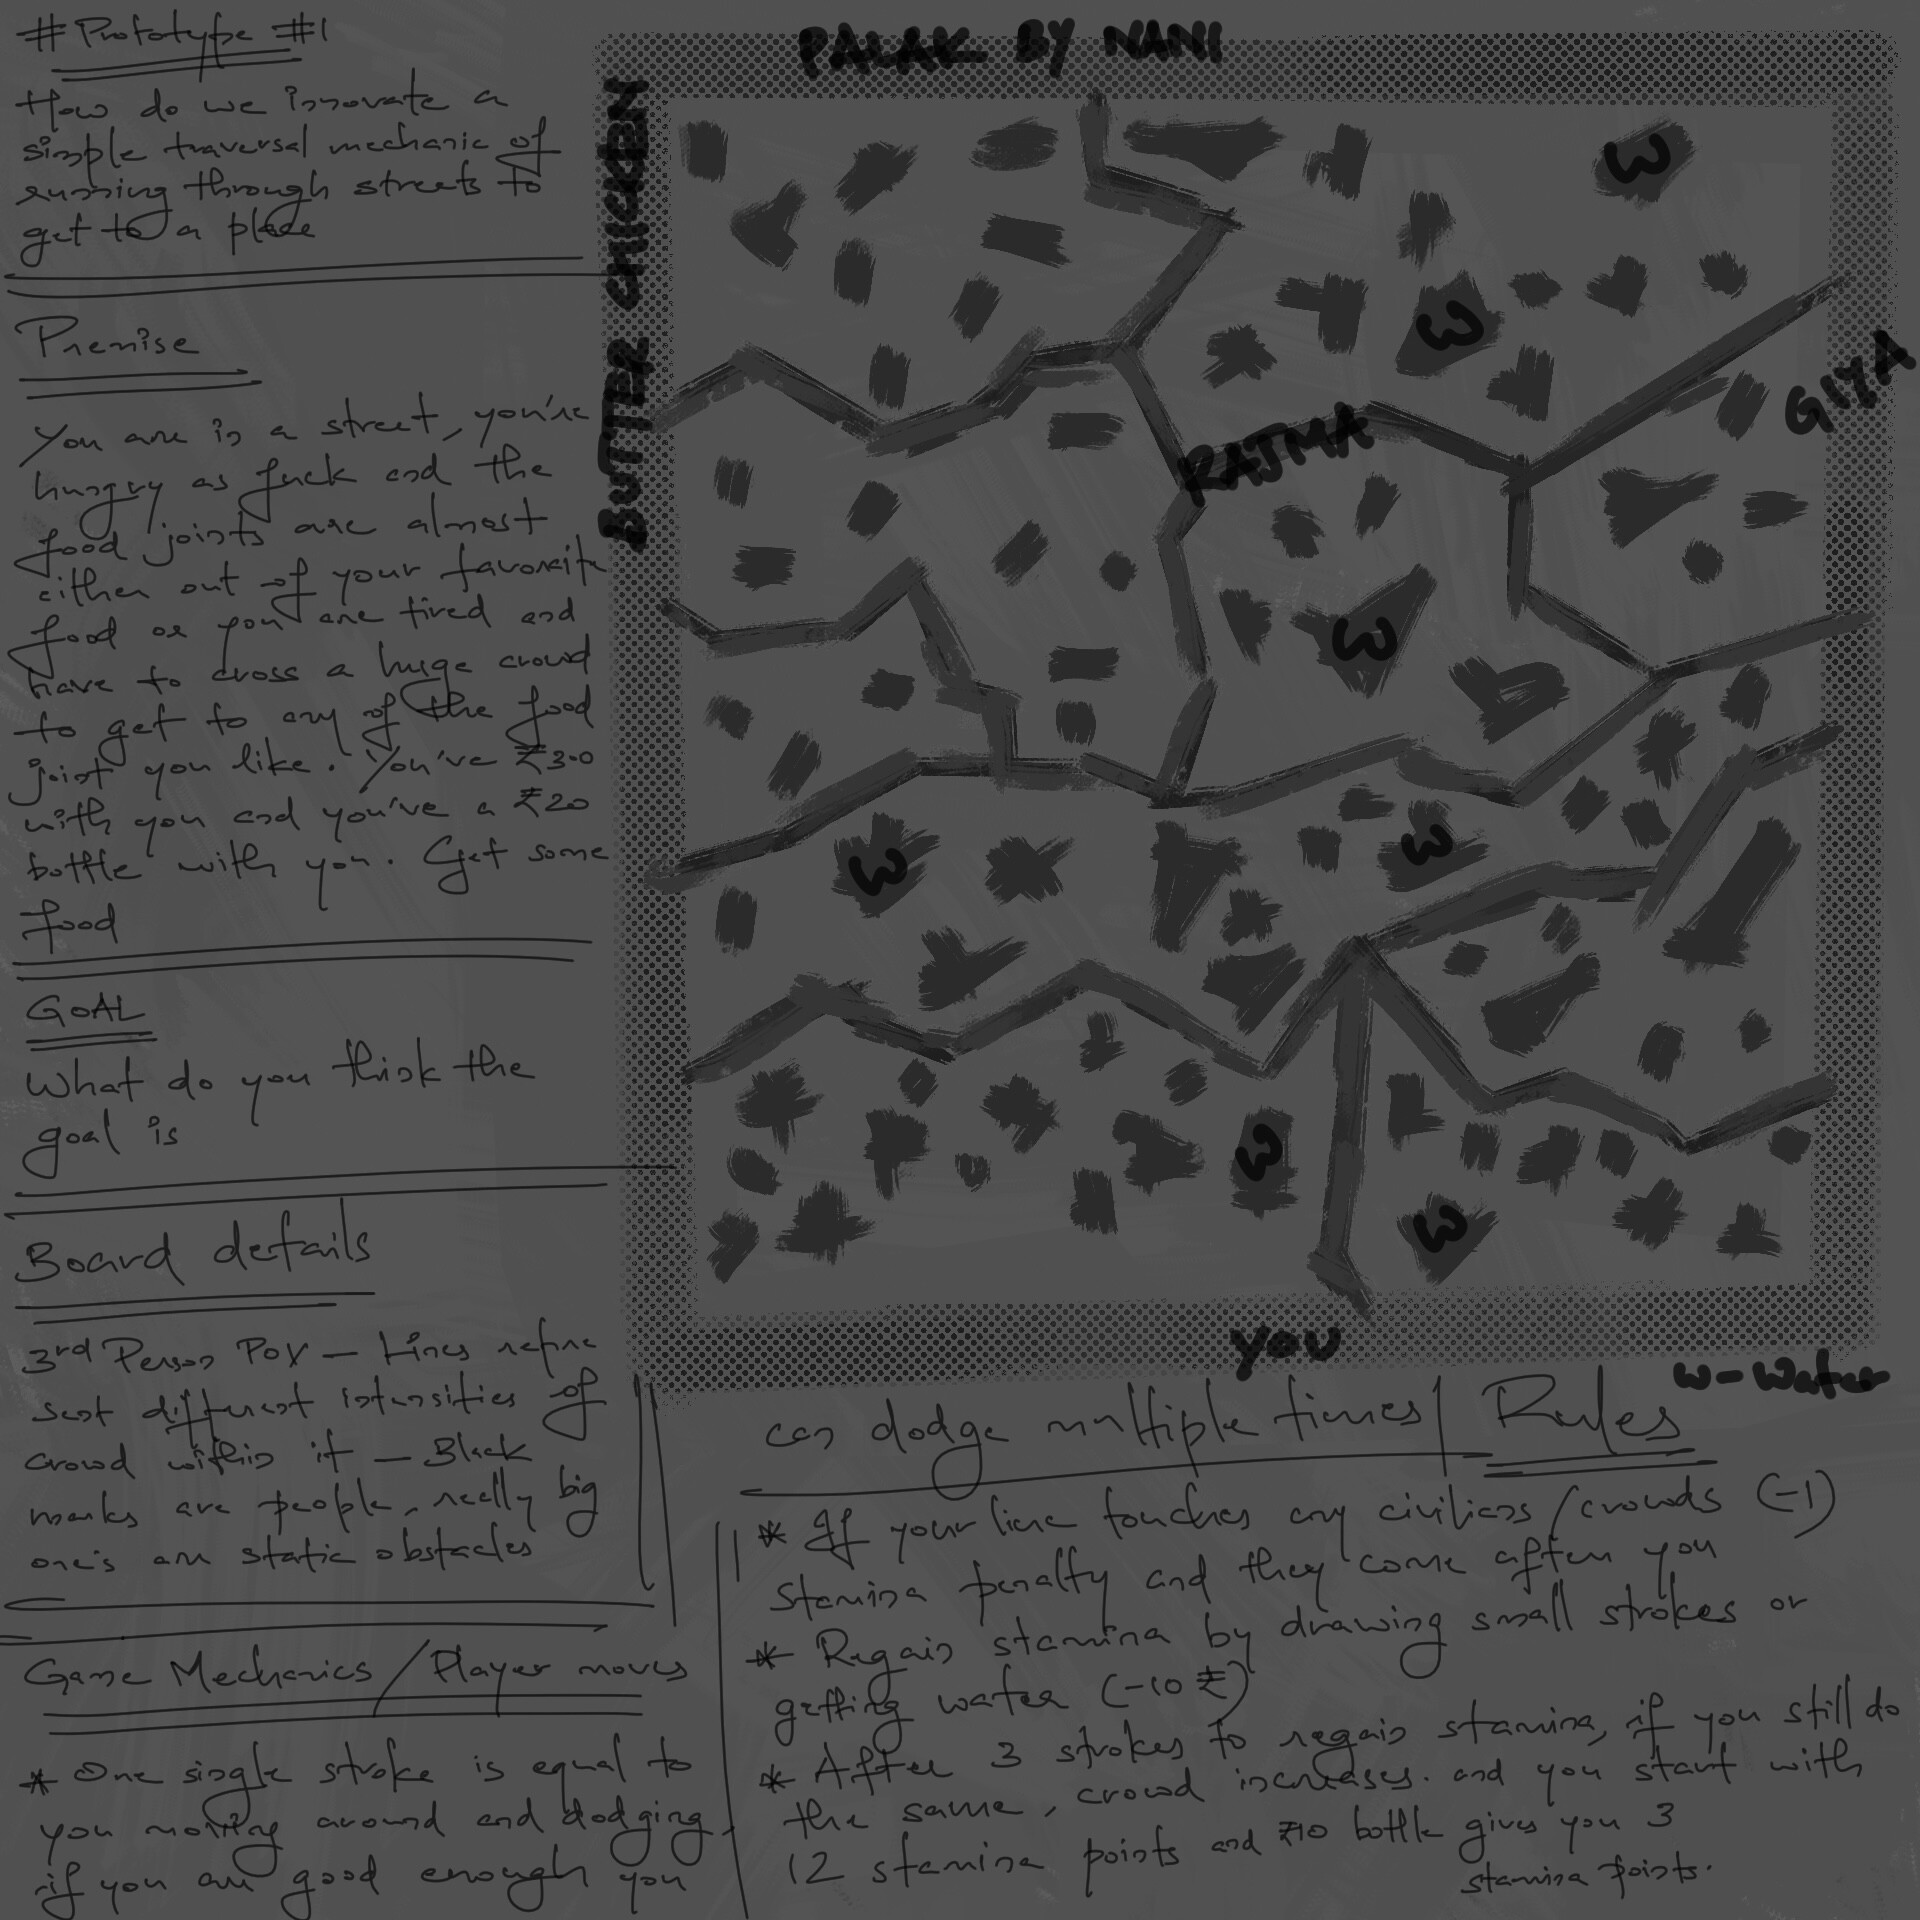 #Prototype #1
How do we innovate a
simple traversal mechanic of
running through streets to
get to a place
Premise
You are in a street, you're
hungry as fuck and the
food joints are almost
either out of your favorite
food or you are tired and
have to cross a huge crowd
to get to any of the food
joint you like. You've ₹300
with you and you've a ₹20
bottle with you. Get some
food
GOAL
What do you think the
goal is
Board details
3rd Person POV - Lines repre
sent different intensities of
crowd within it - Black
marks are people, really big
one's are static obstacles
Game Mechanics / Player moves
* One single stroke is equal to
you moving around and dodging,
if you are good enough you
PALAK BY NANI
BUTTER CHICKEN
W
W
GIYA
RAJMA
W
W
W
W
W
YOU
W-Water
can dodge multiple times
Rules
* If your line touches any civilians/crowds (-1)
stamina penalty and they come after you
* Regain stamina by drawing small strokes or
getting water (-10 ₹)
* After 3 strokes to regain stamina, if you still do
the same, crowd increases. and you start with
12 stamina points and ₹10 bottle gives you 3
stamina points.